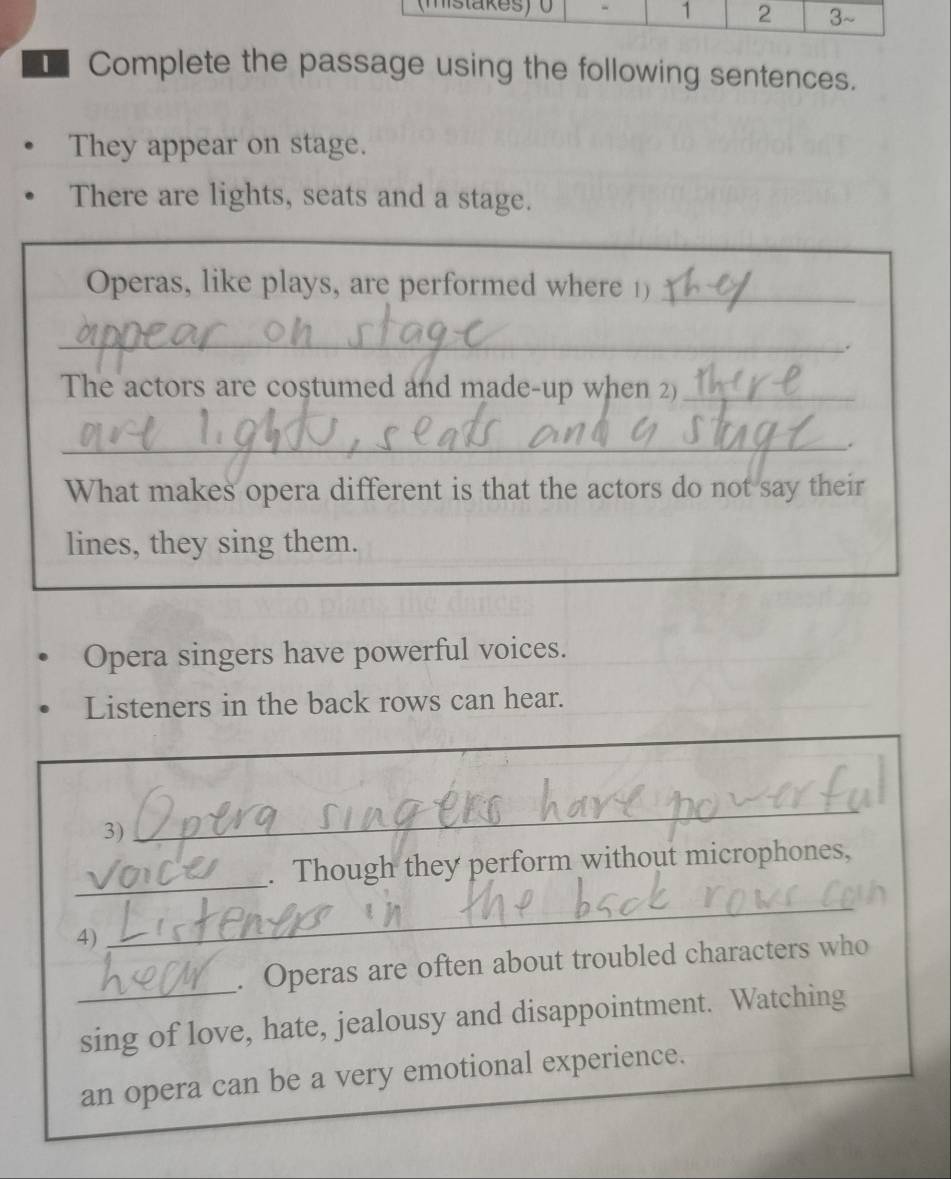 (mistakes) 0 - 1 2 3~
1 Complete the passage using the following sentences.
• They appear on stage.
• There are lights, seats and a stage.
Operas, like plays, are performed where 1) they
appear on stage.
The actors are costumed and made-up when 2) there
are lights, seats and a stage.
What makes opera different is that the actors do not say their
lines, they sing them.
• Opera singers have powerful voices.
• Listeners in the back rows can hear.
3) Opera singers have powerful
voices. Though they perform without microphones,
4) Listeners in the back rows can
hear. Operas are often about troubled characters who
sing of love, hate, jealousy and disappointment. Watching
an opera can be a very emotional experience.